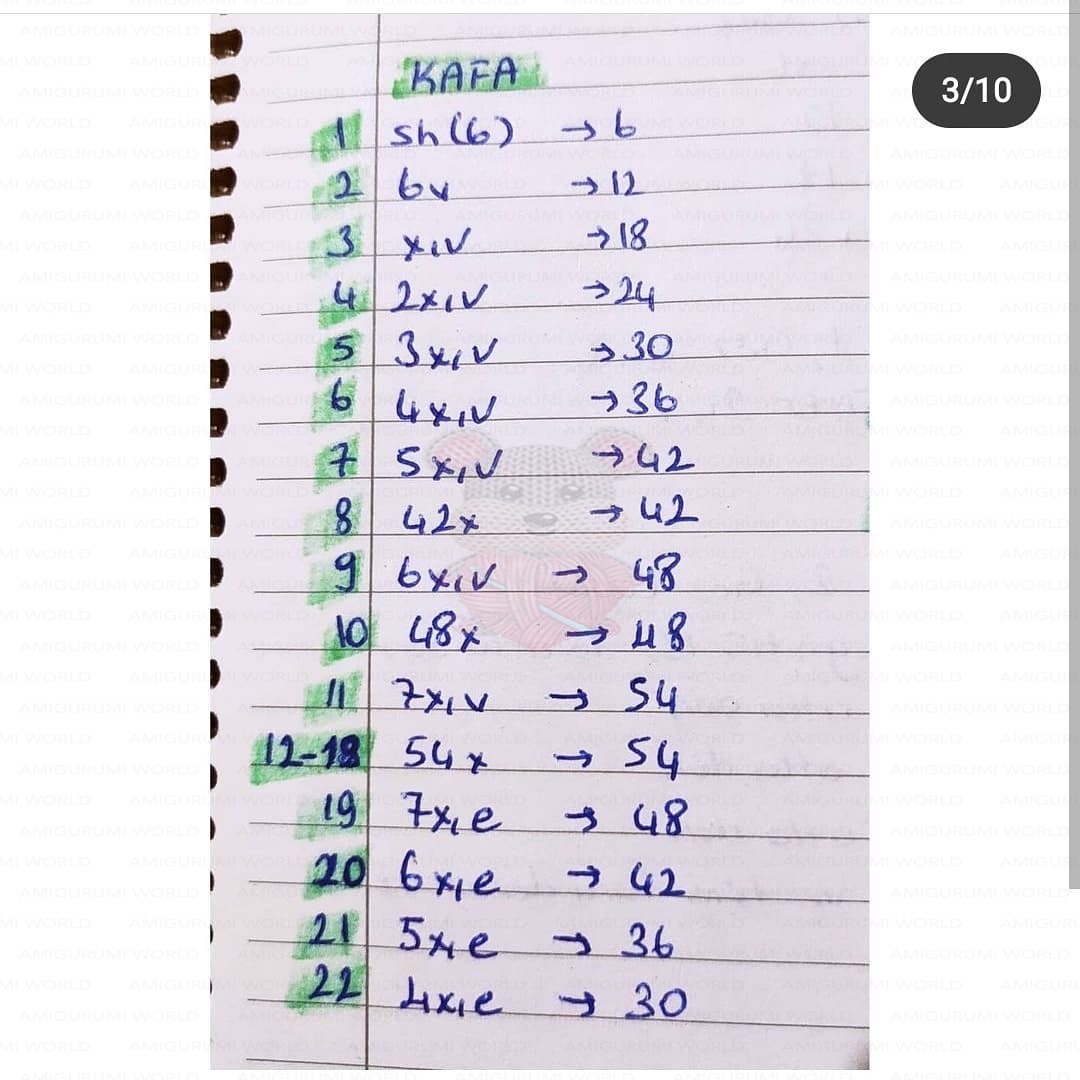 3/10
KAFA
1 sh(6) → 6
2 6v → 12
3 x,v → 18
4 2x,v → 24
5 3x,v → 30
6 4x,v → 36
7 5x,v → 42
8 42x → 42
9 6x,v → 48
10 48x → 48
11 7x,v → 54
12-18 54x → 54
19 7x,e → 48
20 6x,e → 42
21 5x,e → 36
22 4x,e → 30
AMIGURUMI WORLD